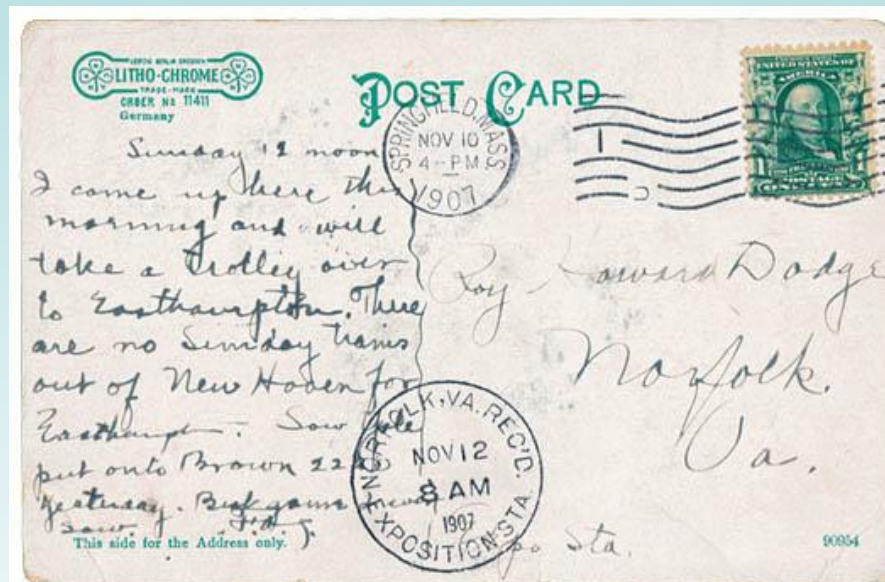 LEIPZIG BERLIN DRESDEN
LITHO-CHROME
TRADE-MARK
ORDER No 11411
Germany
POST CARD
SPRINGFIELD, MASS.
NOV 10
4-PM
1907
UNITED STATES OF
AMERICA
Sunday 12 noon
I come up here this
morning and will
take a trolley over
to Easthampton. There
are no Sunday trains
out of New Haven for
Easthampt. Saw Yale
put onto Brown 22 to
yesterday. Best game I ever
saw.
This side for the Address only.
Roy Howard Dodge
Norfolk.
Va.
Expo Sta.
NORFOLK, VA. REC'D.
NOV 12
8 AM
1907
EXPOSITION STA.
90954